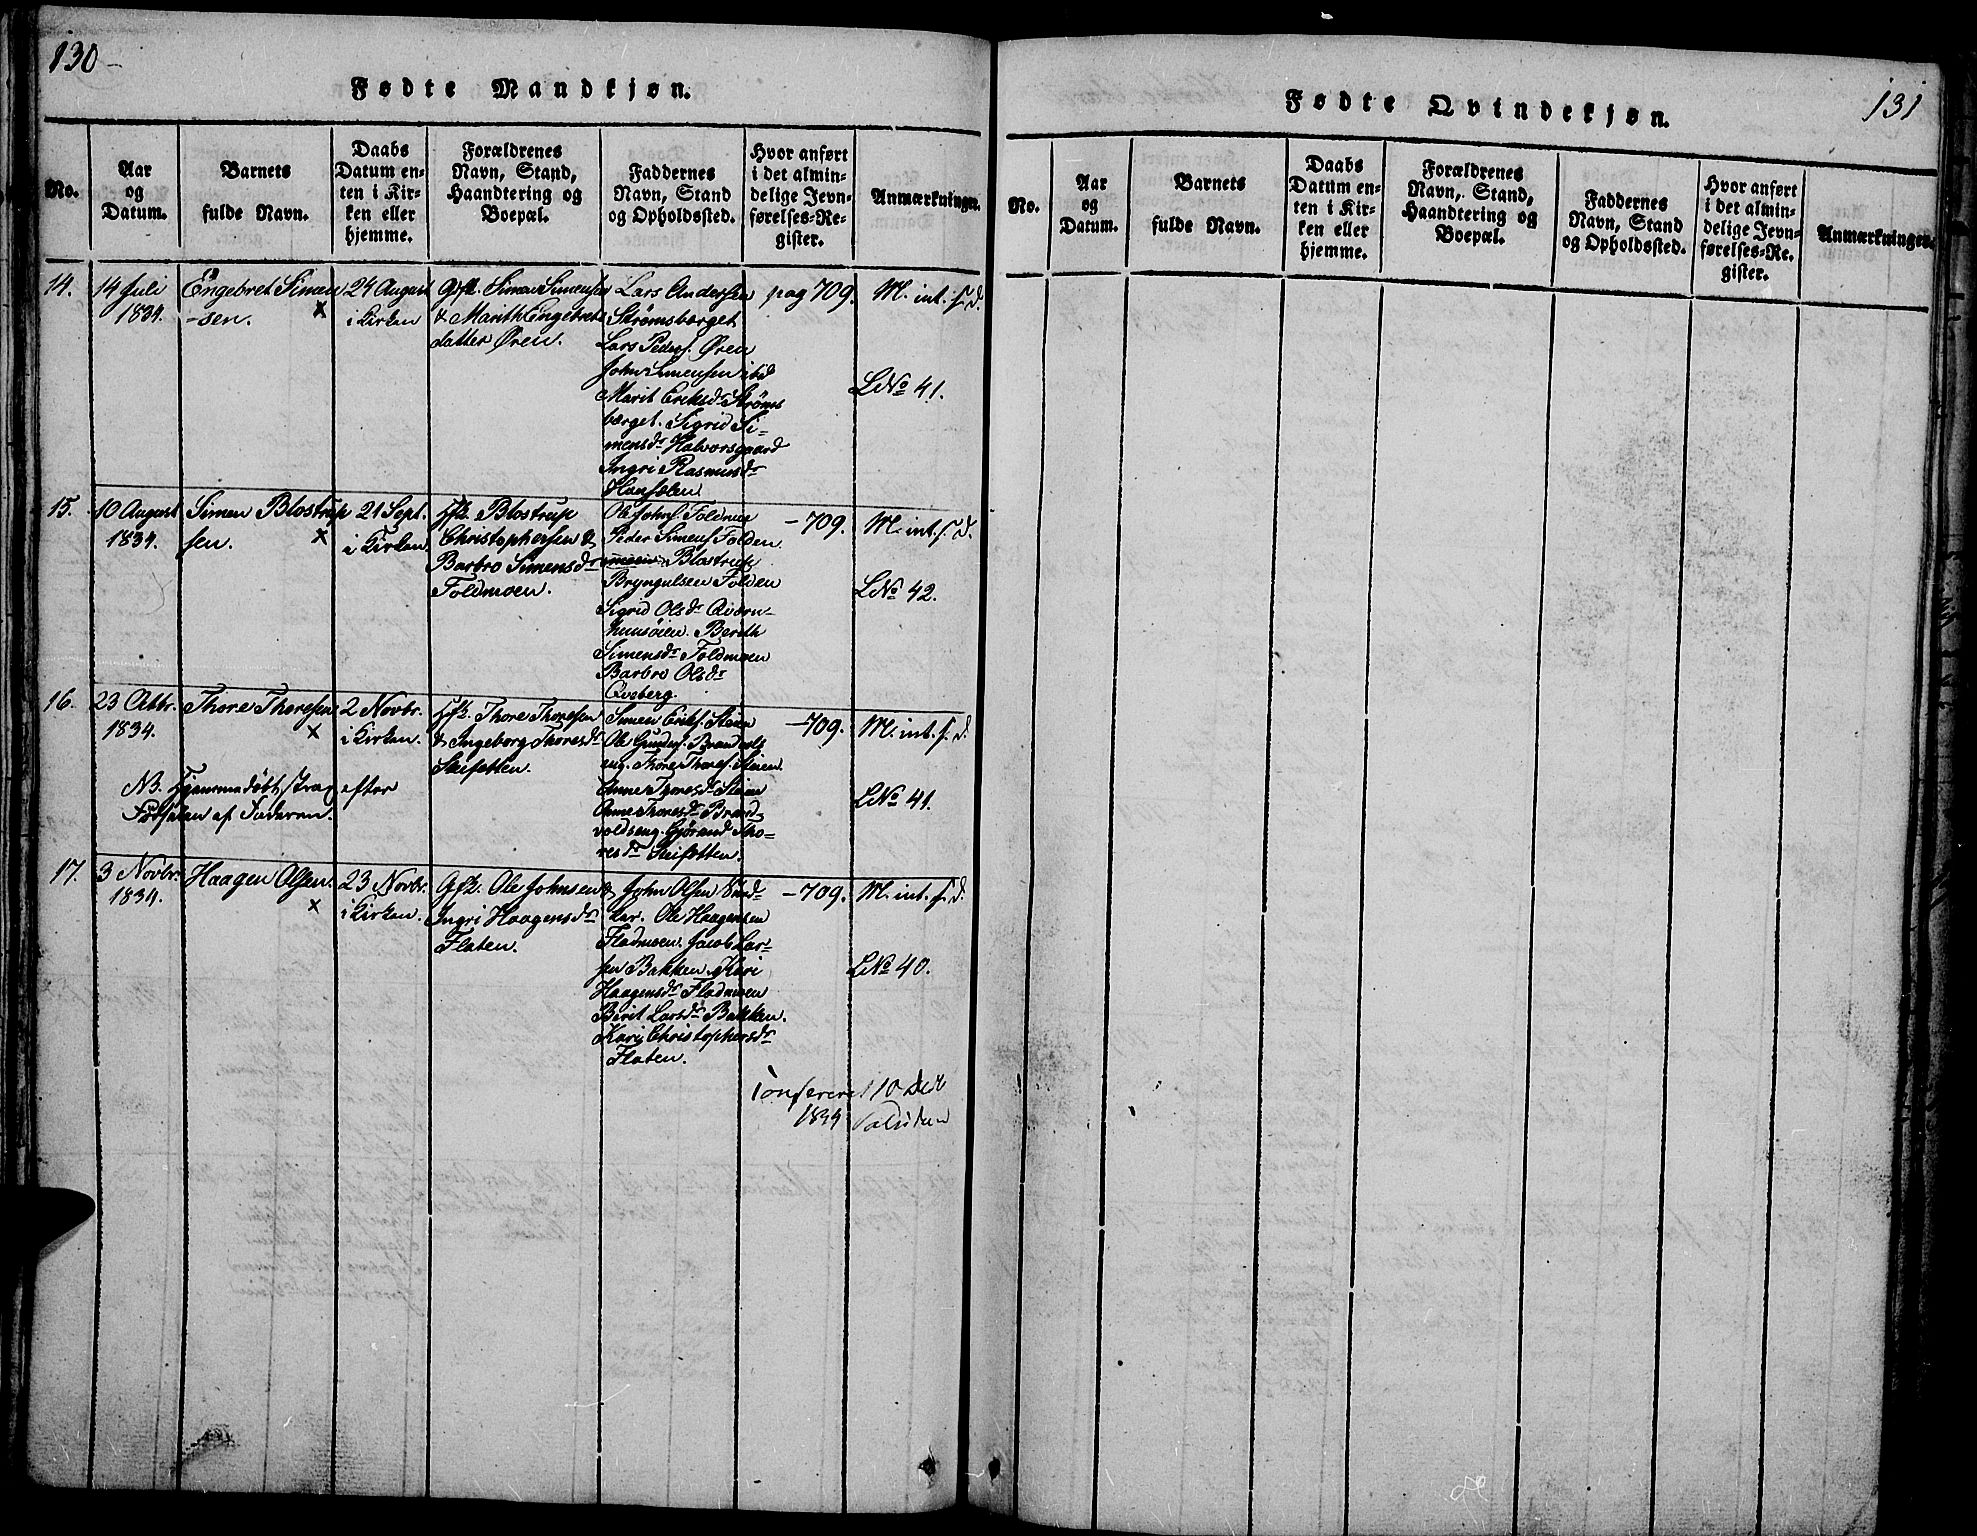 130
Fødte Mandkjøn.
No.
Aar
og
Datum.
Barnets
fulde Navn.
Daabs
Datum en-
ten i Kir-
ken eller
hjemme.
Forældrenes
Navn, Stand,
Haandtering og
Boepæl.
Faddernes
Navn, Stand
og Opholdssted.
Hvor anført
i det almin-
delige Jevn-
førelses-Re-
gister.
Anmærkninger.
14.
14 Juli
1834.
Engebret Simen
-sen. x
24 August
i Kirken
Gfk. Simen Simensen
& Marith Engebrets
datter Øren.
Lars Andersen
Strømsbærget
Lars Peders. Øren
John Simensen ibd
Marit Eriksdr Strøms
bærget. Sigrid Si-
mensdr Halvorsgaard
Ingri Rasmusdr
pag 709.
M. int. s. d.
LNo 41.
15.
10 August
1834.
Simen Blostrup
sen. x
21 Sept.
i Kirken.
Hfk Blostrup
Christophersen &
Barbro Simensdr
Foldmoen.
Ole Johns Foldmoe
Peder Simens Folden
Blostrup
Bryngulsen Folden
Sigrid Olsdr Qværn-
Berith
Simensdr Foldmoen
Barbro Olsdr
Qveberg.
- 709.
M. int. s. d.
LNo 42.
16.
23 Octbr.
1834.
Thore Thoresen
x
2 Novbr.
i Kirken.
Hfk. Thore Thoresen
& Ingeborg Thoresdr
Steifetten.
Simen Eriks. Steien
Ole Brandvolds
eng. Thore Thores. Steien
Anne Thoresdr Steien
Anne Thoresdr Brand
voldseng. Gjørand Tho-
resdr Steifetten.
- 709.
M. int. s. d.
LNo 41.
NB. Hjemmedøbt strax efter
Fødselen af Faderen.
17.
3 Novbr.
1834.
Haagen Olsen.
x
23 Novbr.
i Kirken.
Gfk. Ole Johnsen &
Ingri Haagensdr
Flaten.
John Olsen
Ole Haagensen
Fladmoen. Jacob Lar-
sen Bakken. Kari
Haagensdr Fladmoen
Berit Larsdr Bakken.
Kari Christophersdr
Flaten.
- 709.
M. int. s. d.
LNo 40.
Confereret 10 Decb
1834
131
Fødte Qvindekjøn.
No.
Aar
og
Datum.
Barnets
fulde Navn.
Daabs
Datum en-
ten i Kir-
ken eller
hjemme.
Forældrenes
Navn, Stand,
Haandtering og
Boepæl.
Faddernes
Navn, Stand
og Opholdssted.
Hvor anført
i det almin-
delige Jevn-
førelses-Re-
gister.
Anmærkninger.